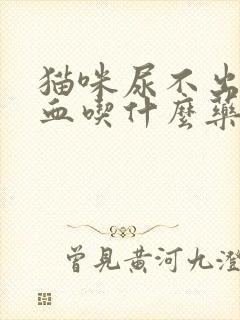 猫咪尿不出
血喫什麼藥
曾見黃河九澄